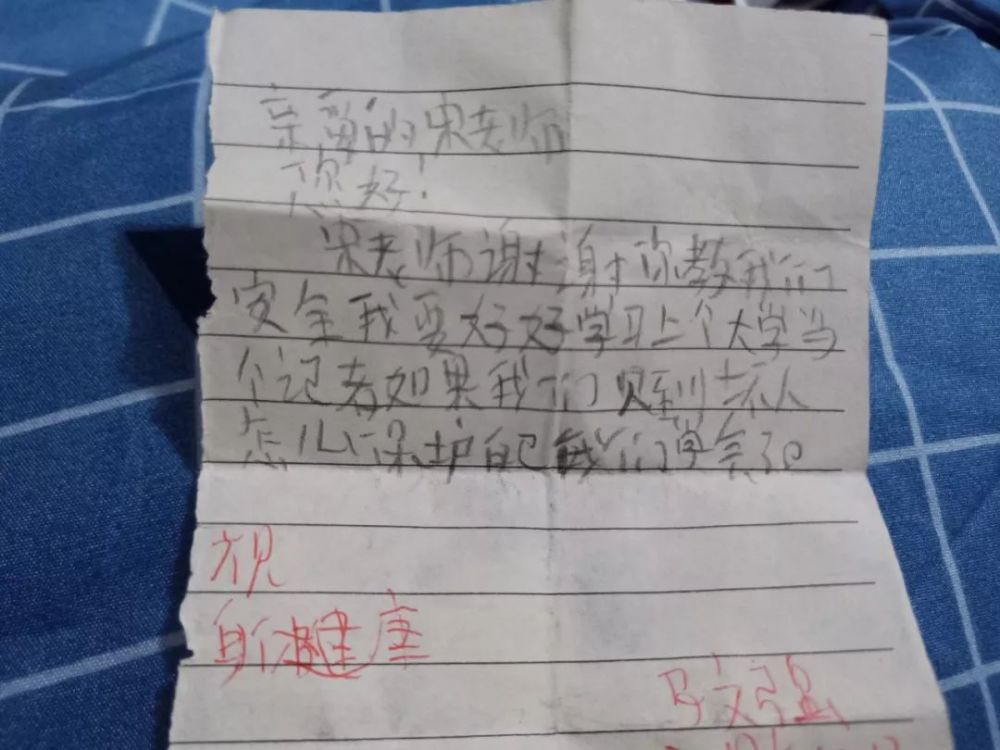 亲爱的宋老师
您好!
宋老师谢谢你教我们
安全我要好好学习上个大学当
个记者如果我们见到坏人
怎么保护自己我们学会了。
祝
身体健康
马文强